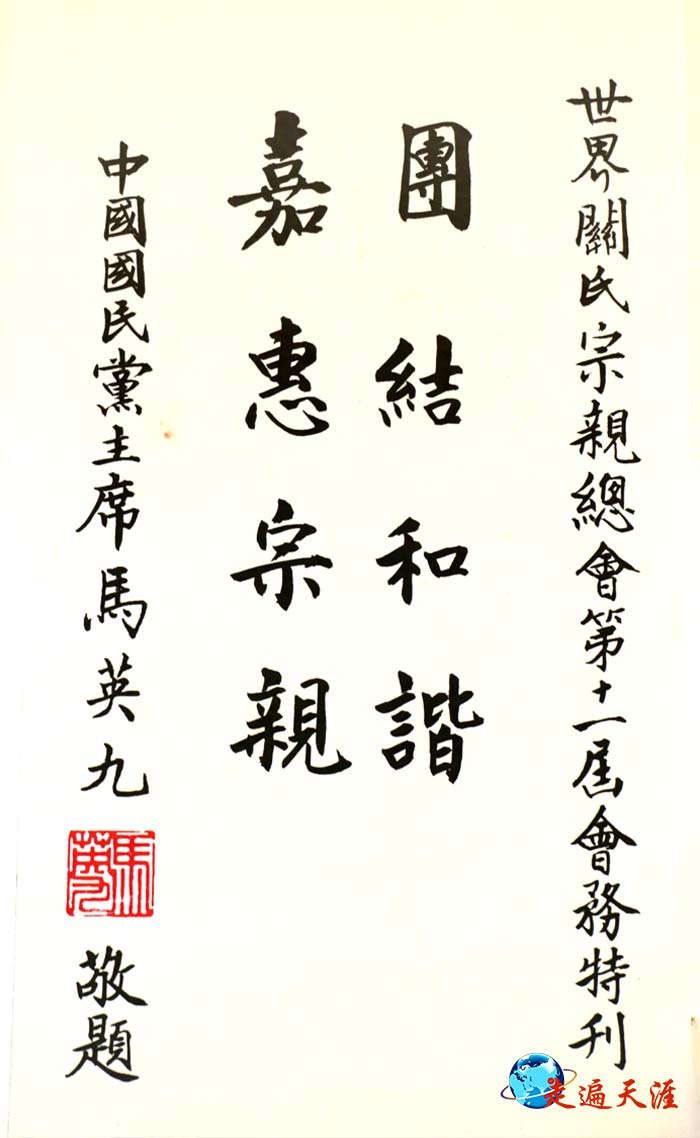 世界關氏宗親總會第十一屆會務特刊
團結和諧
嘉惠宗親
中國國民黨主席馬英九
馬英九
敬題
走遍天涯